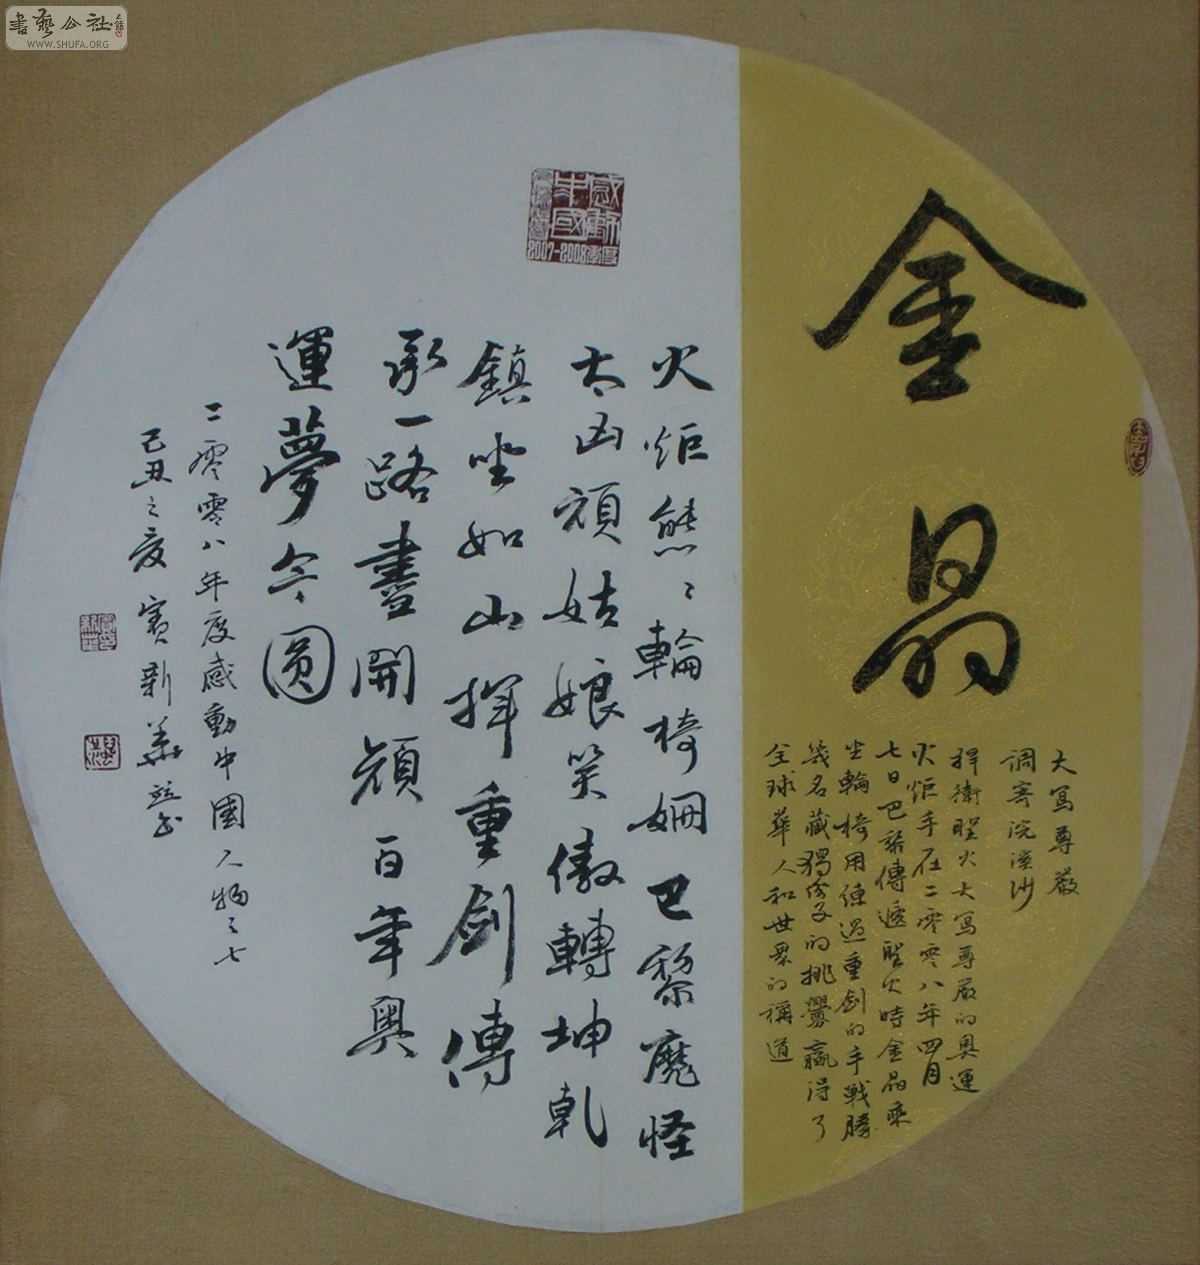 書藝公社
WWW.SHUFA.ORG
金晶
大寫尊嚴
調寄浣溪沙
捍衛聖火大寫尊嚴的奧運
火炬手在二零零八年四月
七日巴黎傳遞聖火時金晶乘
坐輪椅用練過重劍的手戰勝
幾名藏獨分子的挑釁贏得了
全球華人和世界的稱道
感動
中國
2007-2008年度
火炬熊〻輪椅姍巴黎魔怪
太凶頑姑娘笑傲轉坤乾
鎮坐如山揮重劍傳
承一路盡開顏百年奧
運夢今圓
二零零八年度感動中國人物之七
己丑之夏賓新華並书